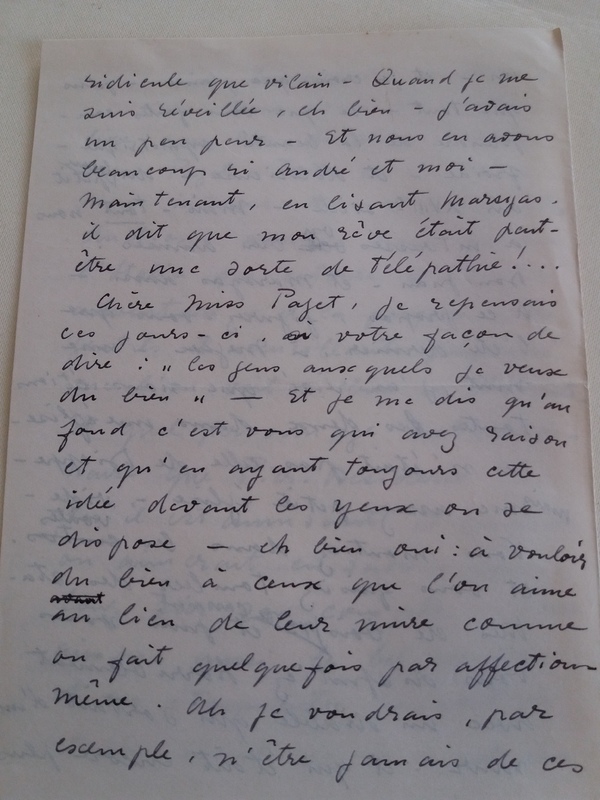 ridicule que vilain – Quand je me
suis réveillée, eh bien – j'avais
un peu peur – Et nous en avons
beaucoup ri André et moi –
Maintenant, en lisant Marsyas.
il dit que mon rêve était peut-
être une sorte de télépathie!...
Chère Miss Paget, je repensais
ces jours-ci, à votre façon de
dire : „ les gens auxquels je veux
du bien „ — Et je me dis qu'au
fond c'est vous qui avez raison
et qu'en ayant toujours cette
idée devant les yeux on se
dispose — eh bien oui : à vouloir
du bien à ceux que l'on aime
au lieu de leur nuire comme
on fait quelquefois par affection
même. Ah je voudrais, par
exemple, n'être jamais de ces